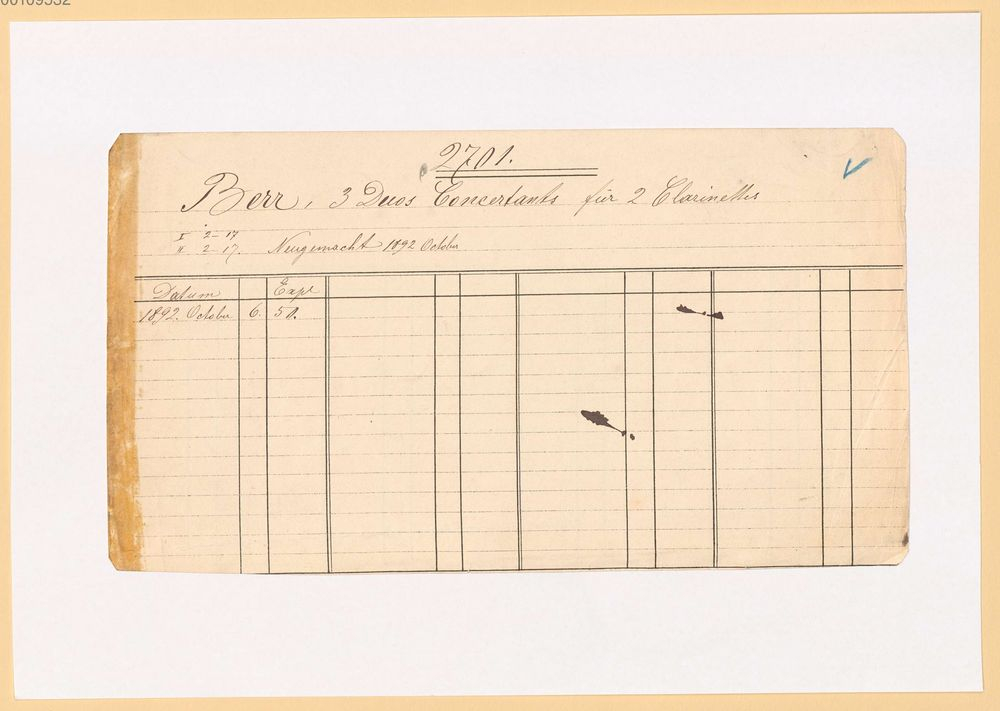 00109532
2701.
Berr, 3 Duos Concertants für 2 Clarinettes
I 2-17
II 2-17. Neugemacht 1892 October
Datum Expl
1892. October 6. 50.